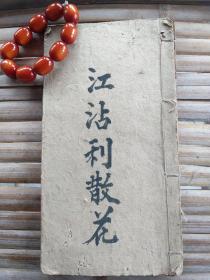 江沾利散花